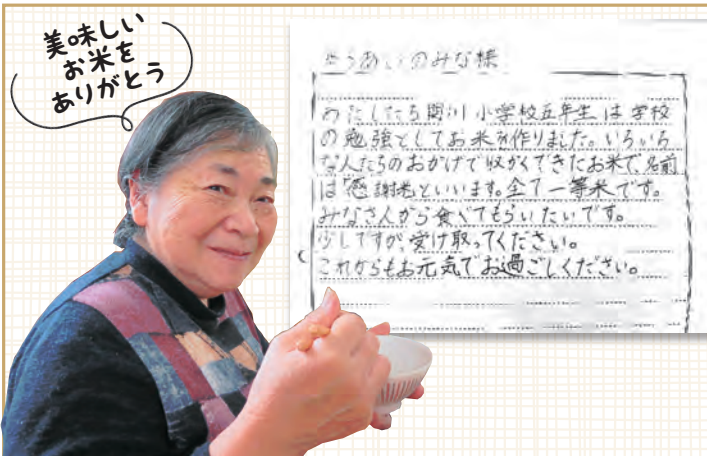 美味しい
お米を
ありがとう
ゆうあいのみな様
わたしたち関川小学校五年生は学校
の勉強としてお米を作りました。いろいろ
な人たちのおかげで収かくできたお米で、名前
は「感謝米」といいます。全て一等米です。
みなさんから食べてもらいたいです。
少しですが、受け取ってください。
これからもお元気でお過ごしください。